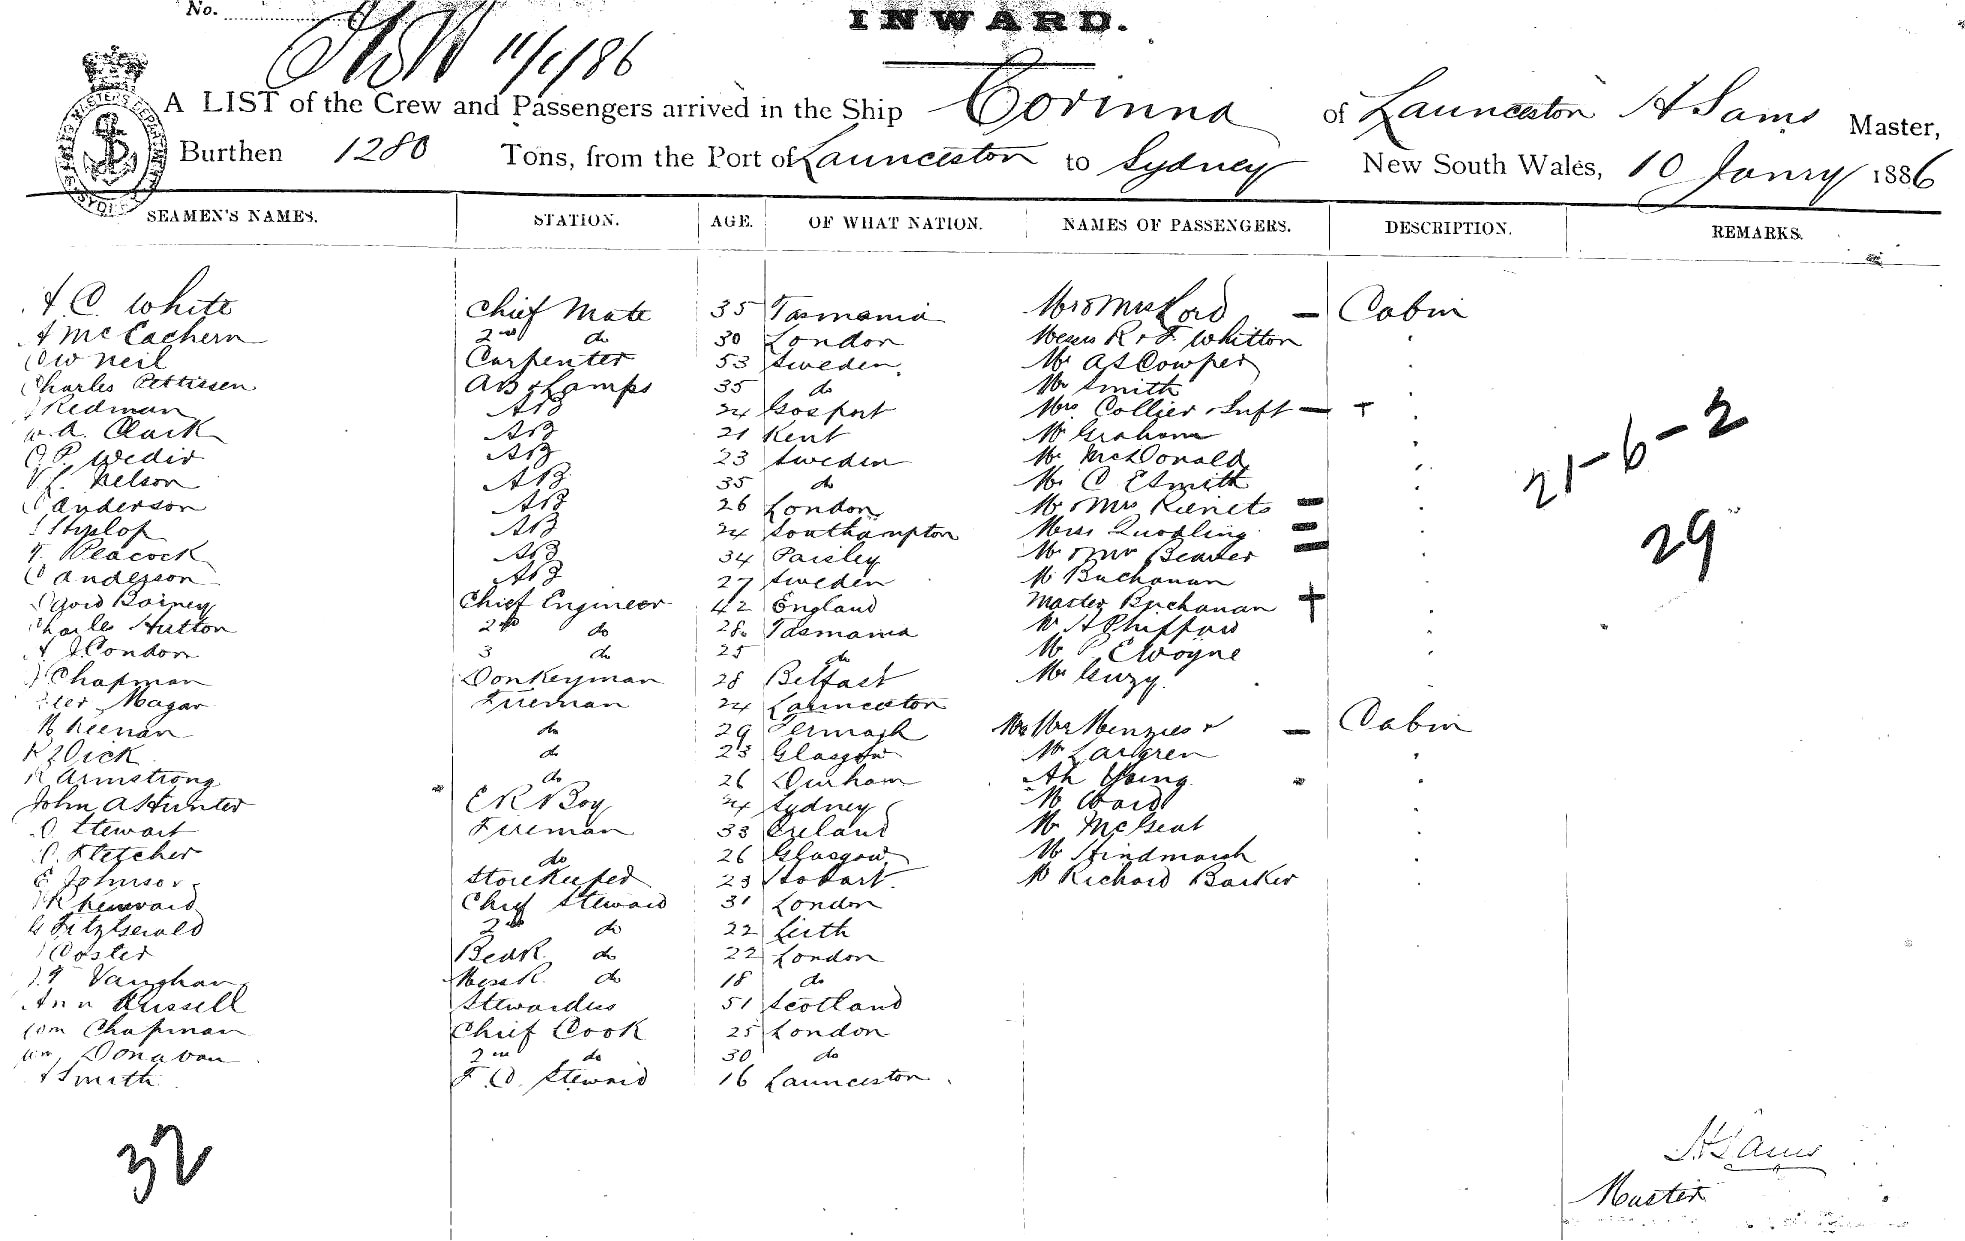 No.
INWARD.
11/1/86
A LIST of the Crew and Passengers arrived in the Ship Corinna of Launceston H Sams Master,
Burthen 1280 Tons, from the Port of Launceston to Sydney New South Wales, 10 Janry 1886
SEAMEN'S NAMES. STATION. AGE. OF WHAT NATION. NAMES OF PASSENGERS. DESCRIPTION. REMARKS.
White Chief Mate 35 Tasmania Mr & Mrs Lord — Cabin
A McEachern 2nd do 30 London Messrs R & F Whitton
O W Neil Carpenter 53 Sweden Mr A S Cowper
Charles Pettissen AB & Lamps 35 do Mr Smith
J Redman AB 24 Gosport Mrs Collier & Inft — +
W. A. Clark AB 21 Kent Mr Graham
O P Wedin AB 23 Sweden Mr McDonald
Nelson AB 35 do Mr C E Smith
Anderson AB 26 London Mr & Mrs =
Hyslop AB 24 Southampton Miss Quodling =
Peacock AB 34 Paisley Mr & Mrs —
Anderson AB 27 Sweden Mr Buchanan
David Barney Chief Engineer 42 England Master Buchanan +
Charles Hutton 2nd do 28 Tasmania Mr H
A J Condon 3 do 25 do Mr
J Chapman Donkeyman 28 Belfast Mr Guzy
Peter Magar Fireman 24 Launceston
M Keenan do 29 Mr Menzies — Cabin
R J Dick do 23 Glasgow Mr Largren
R Armstrong do 26 Durham Ah Young
John A Hunter E R Boy 24 Sydney Mr Ward
Stewart Fireman 33 Ireland Mr
Fletcher do 26 Glasgow Mr Hindmarsh
E Johnson Storekeeper 23 Hobart Mr Richard Barker
Chief Steward 31 London
G Fitzgerald 2nd do 22 Leith
Coster BedR. do 22 London
Vaughan MessR. do 18 do
Ann Russell Stewardess 51 Scotland
Wm Chapman Chief Cook 25 London
Wm Donavan 2nd do 30 do
A Smith F.C. Steward 16 Launceston
21-6-2
29
32
H Sams
Master